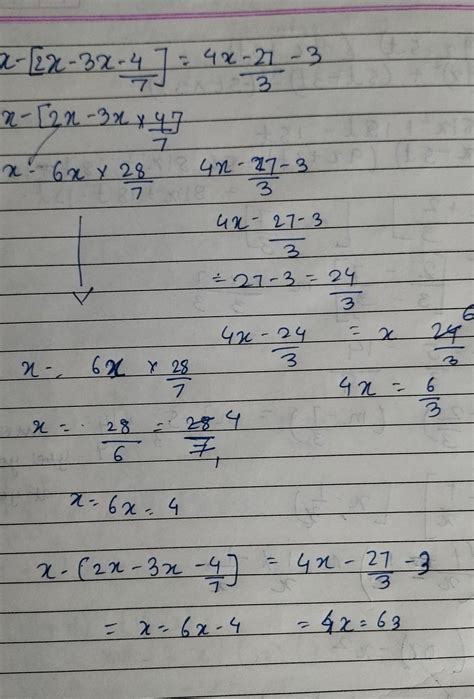 x-[2x-3x-4/7] = 4x-27/3 -3
x-[2x-3x×47/7
x- 6x×28/7 4x-27-3/3
4x-27-3/3
=27-3=24/3
4x-24/3 = x 24/3 6
x-. 6x ×28/7
4x = 6/3
x= 28/6 = 28/7, 4
x=6x=4
x-(2x-3x-4/7] = 4x-27/3-3
= x=6x-4 =4x=63